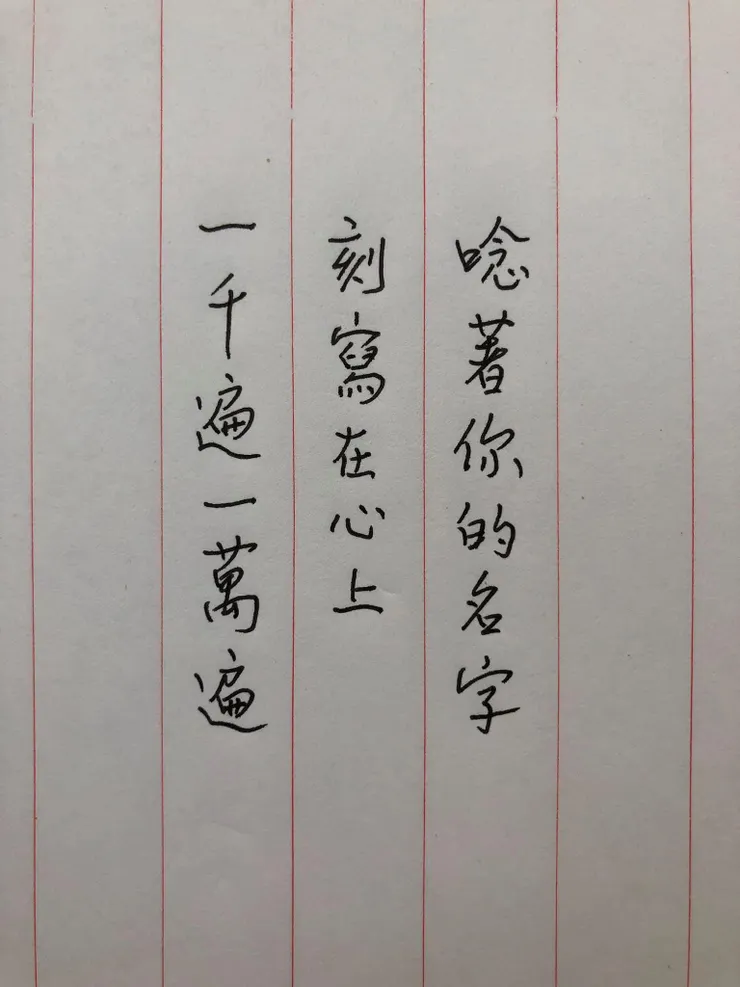 唸著你的名字
刻寫在心上
一千遍一萬遍